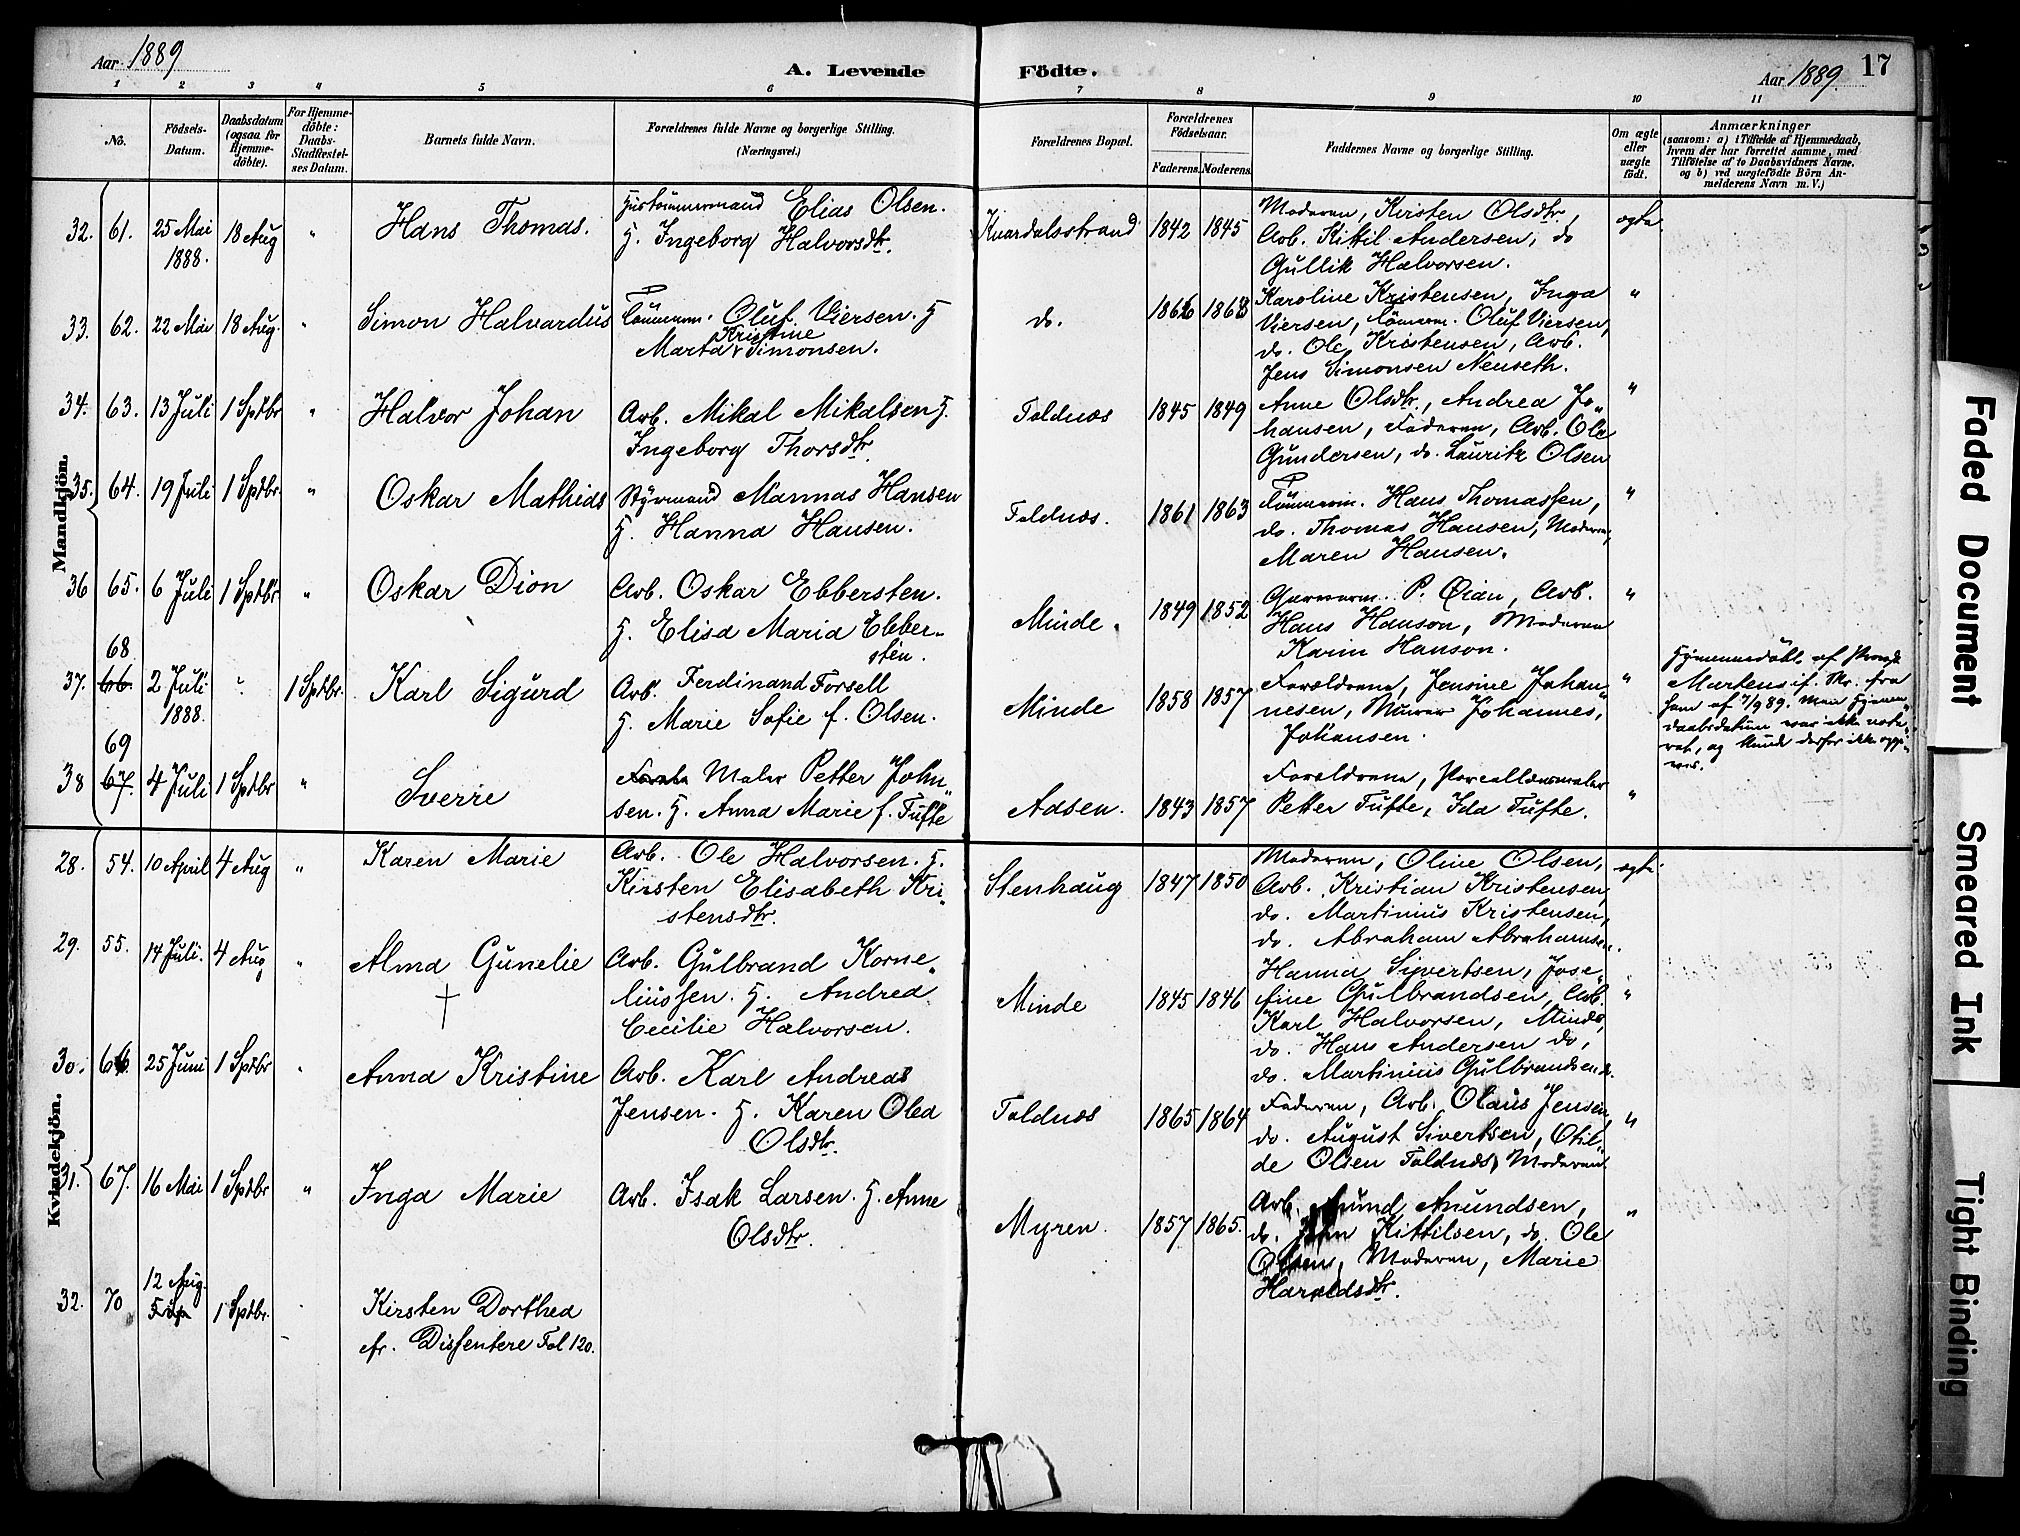 Aar 1889
A. Levende Födte.
Aar 1889
17
1 2 3 4 5 6 7 8 9 10 11
No.
Födsels-
Datum.
Daabsdatum
(ogsaa for
Hjemme-
döbte).
For Hjemme-
döbte:
Daabs-
Stadfestel-
ses Datum.
Barnets fulde Navn.
Forældrenes fulde Navne og borgerlige Stilling.
(Næringsvei.)
Forældrenes Bopæl.
Forældrenes
Födselsaar.
Faderens.
Moderens.
Faddernes Navne og borgerlige Stilling.
Om ægte
eller
uægte
födt.
Anmærkninger
(saasom: a) i Tilfælde af Hjemmedaab,
hvem der har forrettet samme, med
Tilföielse af to Daabsvidners Navne,
og b) ved uægtefödte Börn An-
melderens Navn m. V.)
Mandkjön.
32. 61. 25 Mai 18 Aug " Hans Thomas.
1888.
Elias Olsen.
H. Ingeborg Halvorsdtr.
Knardalsstrand 1842 1845
Moderen, Kirsten Olsdtr,
Arb. Kittil Andersen, do
Gullik Halvorsen.
ægte
33. 62. 22 Mai 18 Aug. " Simon Halvardus
Tömmerm. Oluf Viersen. H
Kristine
Marta Simonsen.
do.
Karoline Kristensen, Inga
Viersen, Tömerm. Oluf Viersen,
do. Ole Kristensen, Arb.
Jens Simonsen Neuseth.
"
34. 63. 13 Juli 1 Sptbr " Halvor Johan
Arb. Mikal Mikalsen H.
Ingeborg Thorsdtr.
Foldnæs 1845 1849
Anne Olsdtr., Andrea Jo-
hansen, Faderen, Arb. Ole
Gundersen, do. Lauritz Olsen
"
35. 64. 19 Juli 1 Sptbr. " Oskar Mathias
Styrmand Mannas Hansen
H. Hanna Hansen.
Foldnæs. 1861 1863
Tömmerm. Hans Thomassen,
do. Thomas Hansen, Moderen,
Maren Hansen.
"
36 65. 6 Juli 1 Sptbr " Oskar Dion
Arb. Oskar Ebbersten.
H. Elisa Maria Ebber-
sten.
Minde. 1849 1852
P. Arb.
Hans Hanson, Moderen
Karin Hanson.
"
68
37. 66. 2 Juli " 1 Sptbr. Karl Sigurd
1888.
Arb. Ferdinand Forsell
H. Marie Sofie f. Olsen.
Minde 1858 1857
Forældrene, Jensine Johan-
nesen, Murer Johannes,
Johansen.
"
Hjemmedöbt af
Martens if. Skr. fra
ham af 7/9 89. Men Hjemme-
daabsdatum var ikke note-
ret, og kunde derfor ikke opgi-
ves.
69
38 67. 4 Juli 1 Sptbr " Sverre
Maler Petter John-
sen. H. Anna Marie f. Tufte
Aasen. 1843 1857
Forældrene, Porcellænsmaler
Petter Tufte, Ida Tufte.
"
Kvindekjön.
28. 54. 10 April 4 Aug " Karen Marie
Arb. Ole Halvorsen. H.
Kirsten Elisabeth Kri-
stensdtr.
Stenhaug 1847 1850
Moderen, Oline Olsen,
Arb. Kristian Kristensen,
do. Martinius Kristensen,
do. Abraham Abrahamsen.
ægte
29. 55. 14 Juli. 4 Aug " Alma Gunelie
Arb. Gulbrand Korne-
liussen. H. Andrea
Cecilie Halvorsen.
Minde 1845 1846
Hanna Sivertsen, Jose-
fine Gulbrandsen, Arb.
Karl Halvorsen, Minde,
do. Hans Andersen do,
do. Martinius Gulbrandsen do.
"
30. 66. 25 Juni 1 Sptbr " Anna Kristine
Arb. Karl Andreas
Jensen. H. Karen Olea
Olsdtr.
Foldnæs 1865 1864
Faderen, Arb. Olaus Jensen,
do. August Sivertsen, Otil-
de Olsen Foldnæs, Moderen.
"
31. 67. 16 Mai 1 Sptbr " Inga Marie
Arb. Isak Larsen. H. Anne
Olsdtr.
Myren. 1857 1865.
Arb. Anundsen,
do. Kittilsen, do. Ole
Olsens, Moderen, Marie
Haraldsdtr.
"
12 Aug.
32. 70 1 Sptbr. Kirsten Dorthea
fr. Dissentere Fol 120.
Faded Document
Smeared Ink
Tight Binding